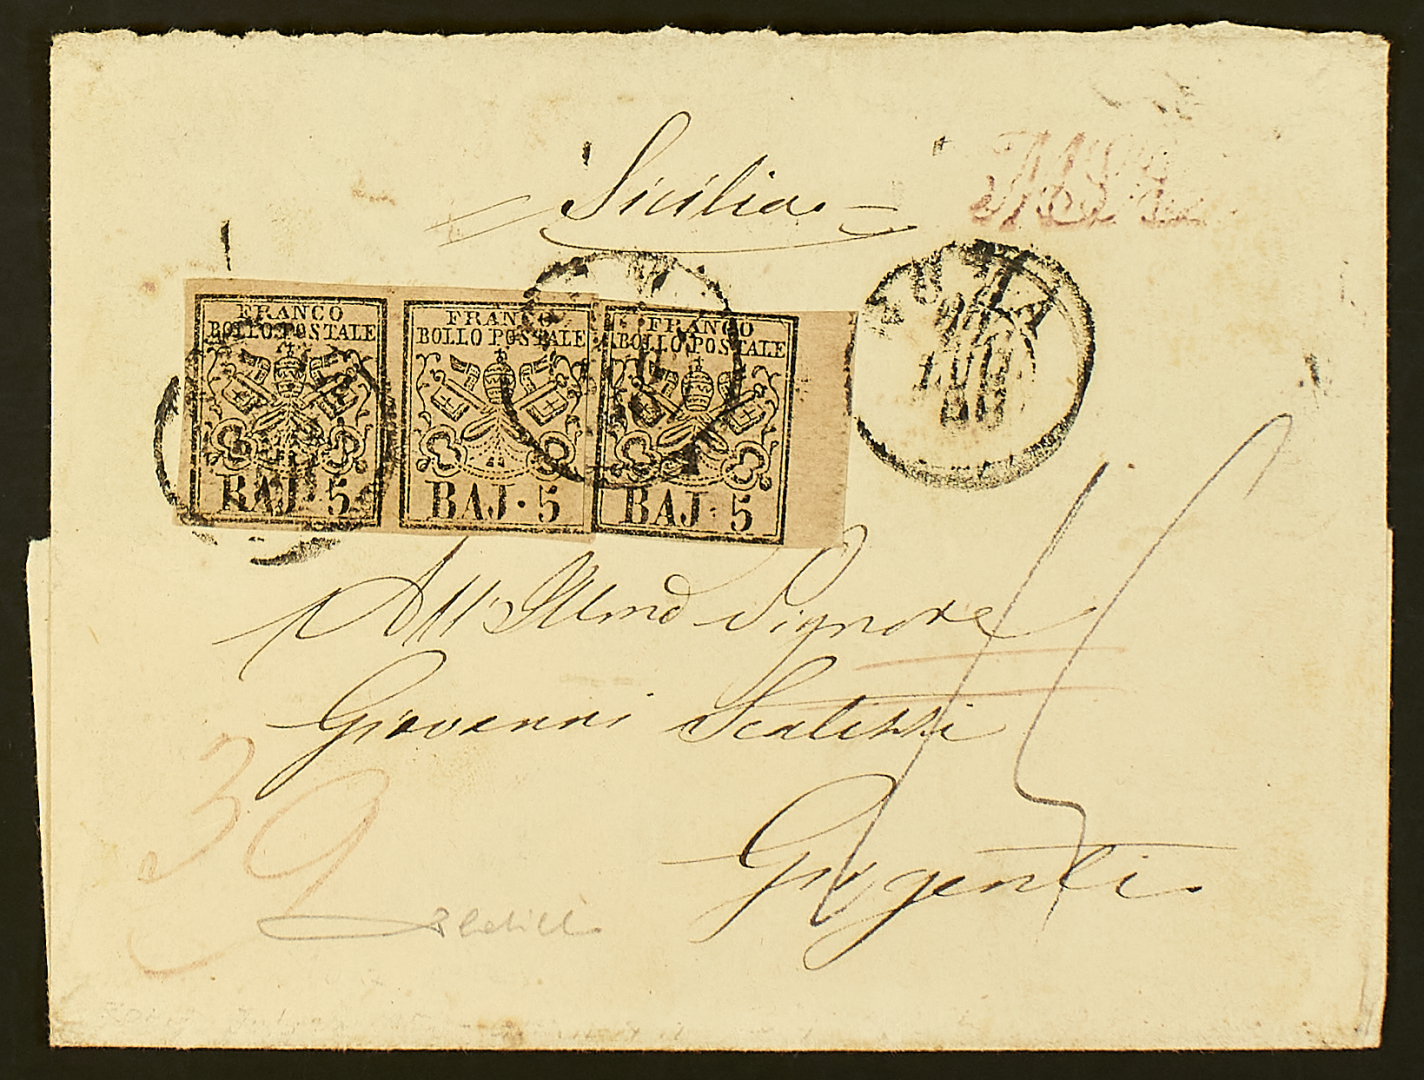 Sicilia
FRANCO
BOLLO POSTALE
BAJ · 5
FRANCO
BOLLO POSTALE
BAJ · 5
FRANCO
BOLLO POSTALE
BAJ · 5
All' Illmo Signore
Giovanni Scalissi
Girgenti
39
15